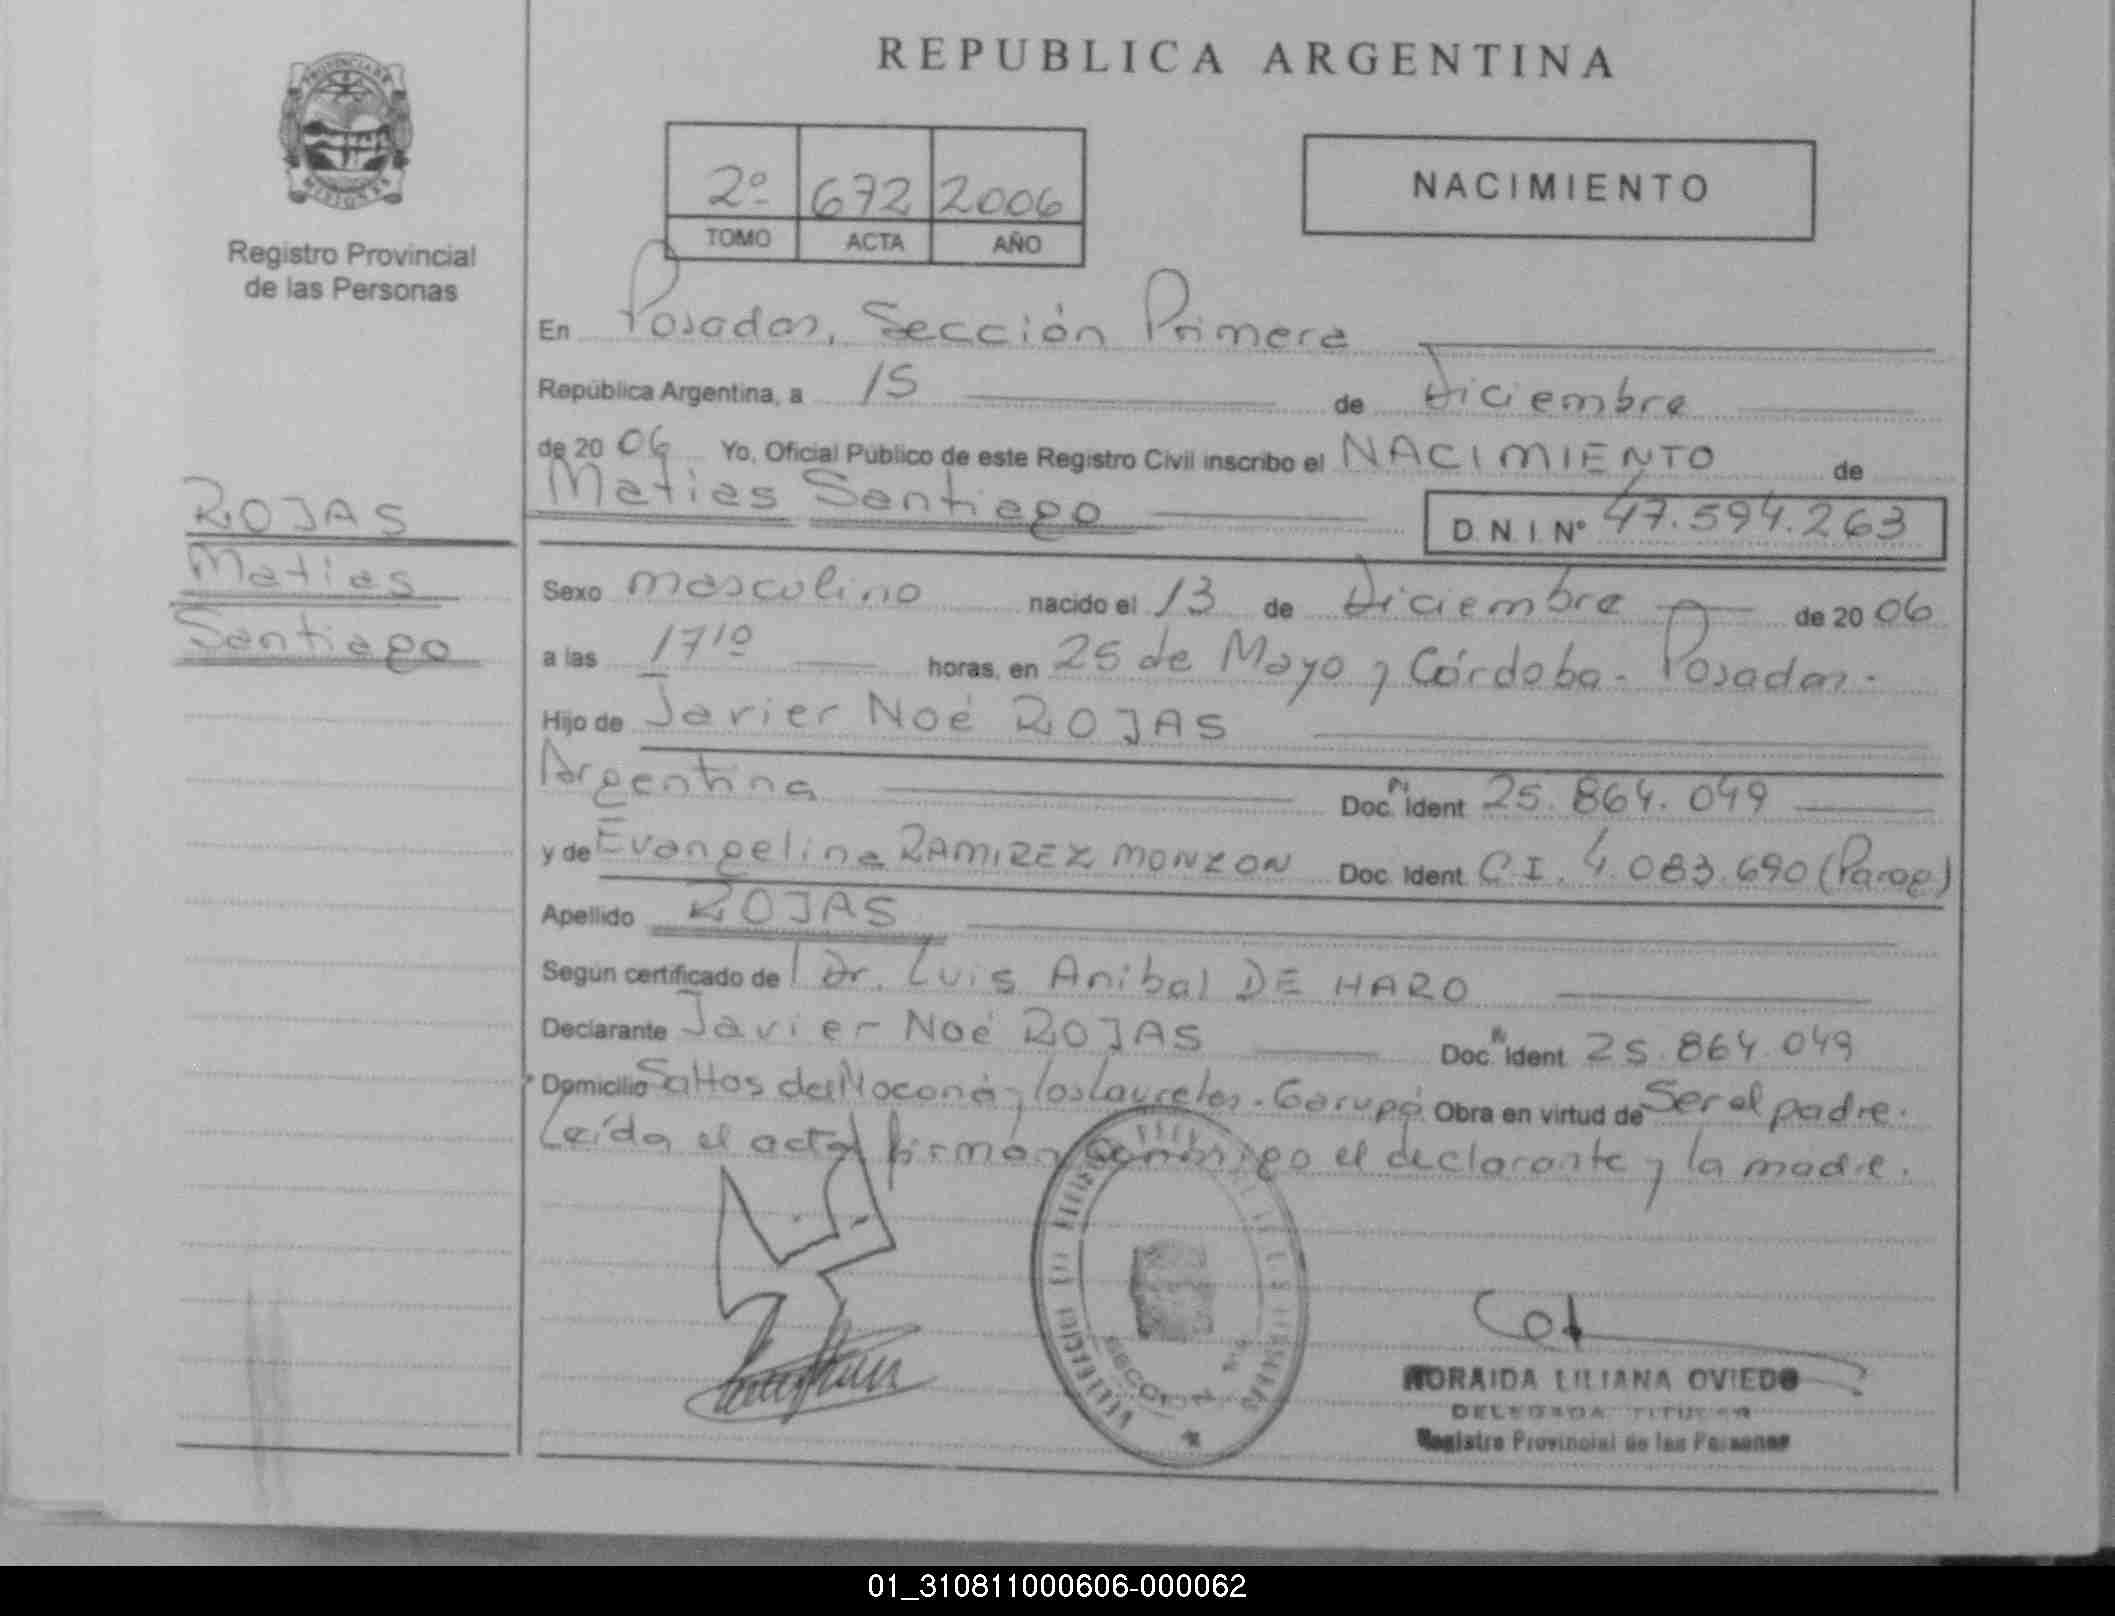 REPUBLICA ARGENTINA
PROVINCIA DE
MISIONES
Registro Provincial
de las Personas
2º 672 2006
TOMO ACTA AÑO
NACIMIENTO
En Posadas, Sección Primera
República Argentina, a 15 de Diciembre
de 2006 Yo, Oficial Público de este Registro Civil inscribo el NACIMIENTO de
Matias Santiago
D.N.I. Nº 47.594.263
ROJAS
Matias
Santiago
Sexo masculino nacido el 13 de Diciembre de 2006
a las 17 10 horas, en 25 de Mayo y Córdoba - Posadas.
Hijo de Javier Noé ROJAS
Argentina Doc. Ident. 25.864.049
y de Evangelina RAMIREZ MONZON Doc. Ident. C.I. 4.083.690 (Parag)
Apellido ROJAS
Según certificado de Dr. Luis Anibal DE HARO
Declarante Javier Noé ROJAS Doc. Ident. 25.864.049
Domicilio Saltos del Moconá y los Laureles - Garupá Obra en virtud de Ser el padre.
Leída el acta firman conmigo el declarante y la madre.
SECCION 1ra
NORAIDA LILIANA OVIEDO
DELEGADA TITULAR
Registro Provincial de las Personas
01_310811000606-000062